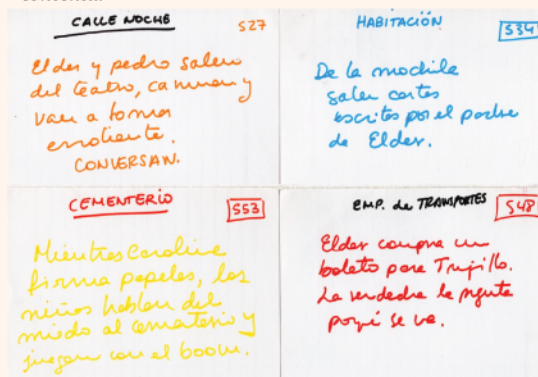 CALLE NOCHE S27
Elder y pedro salen
del teatro, caminan y
van a tomar
emoliente.
CONVERSAN.
HABITACIÓN S34
De la mochila
salen cartas
escritas por el padre
de Elder.
CEMENTERIO S53
Mientras Caroline
firma papeles, los
niños hablan del
miedo al cementerio y
juegan con el boom.
EMP. de TRANSPORTES S48
Elder compra un
boleto para Trujillo.
La vendedora le pgunta
porqué se va.